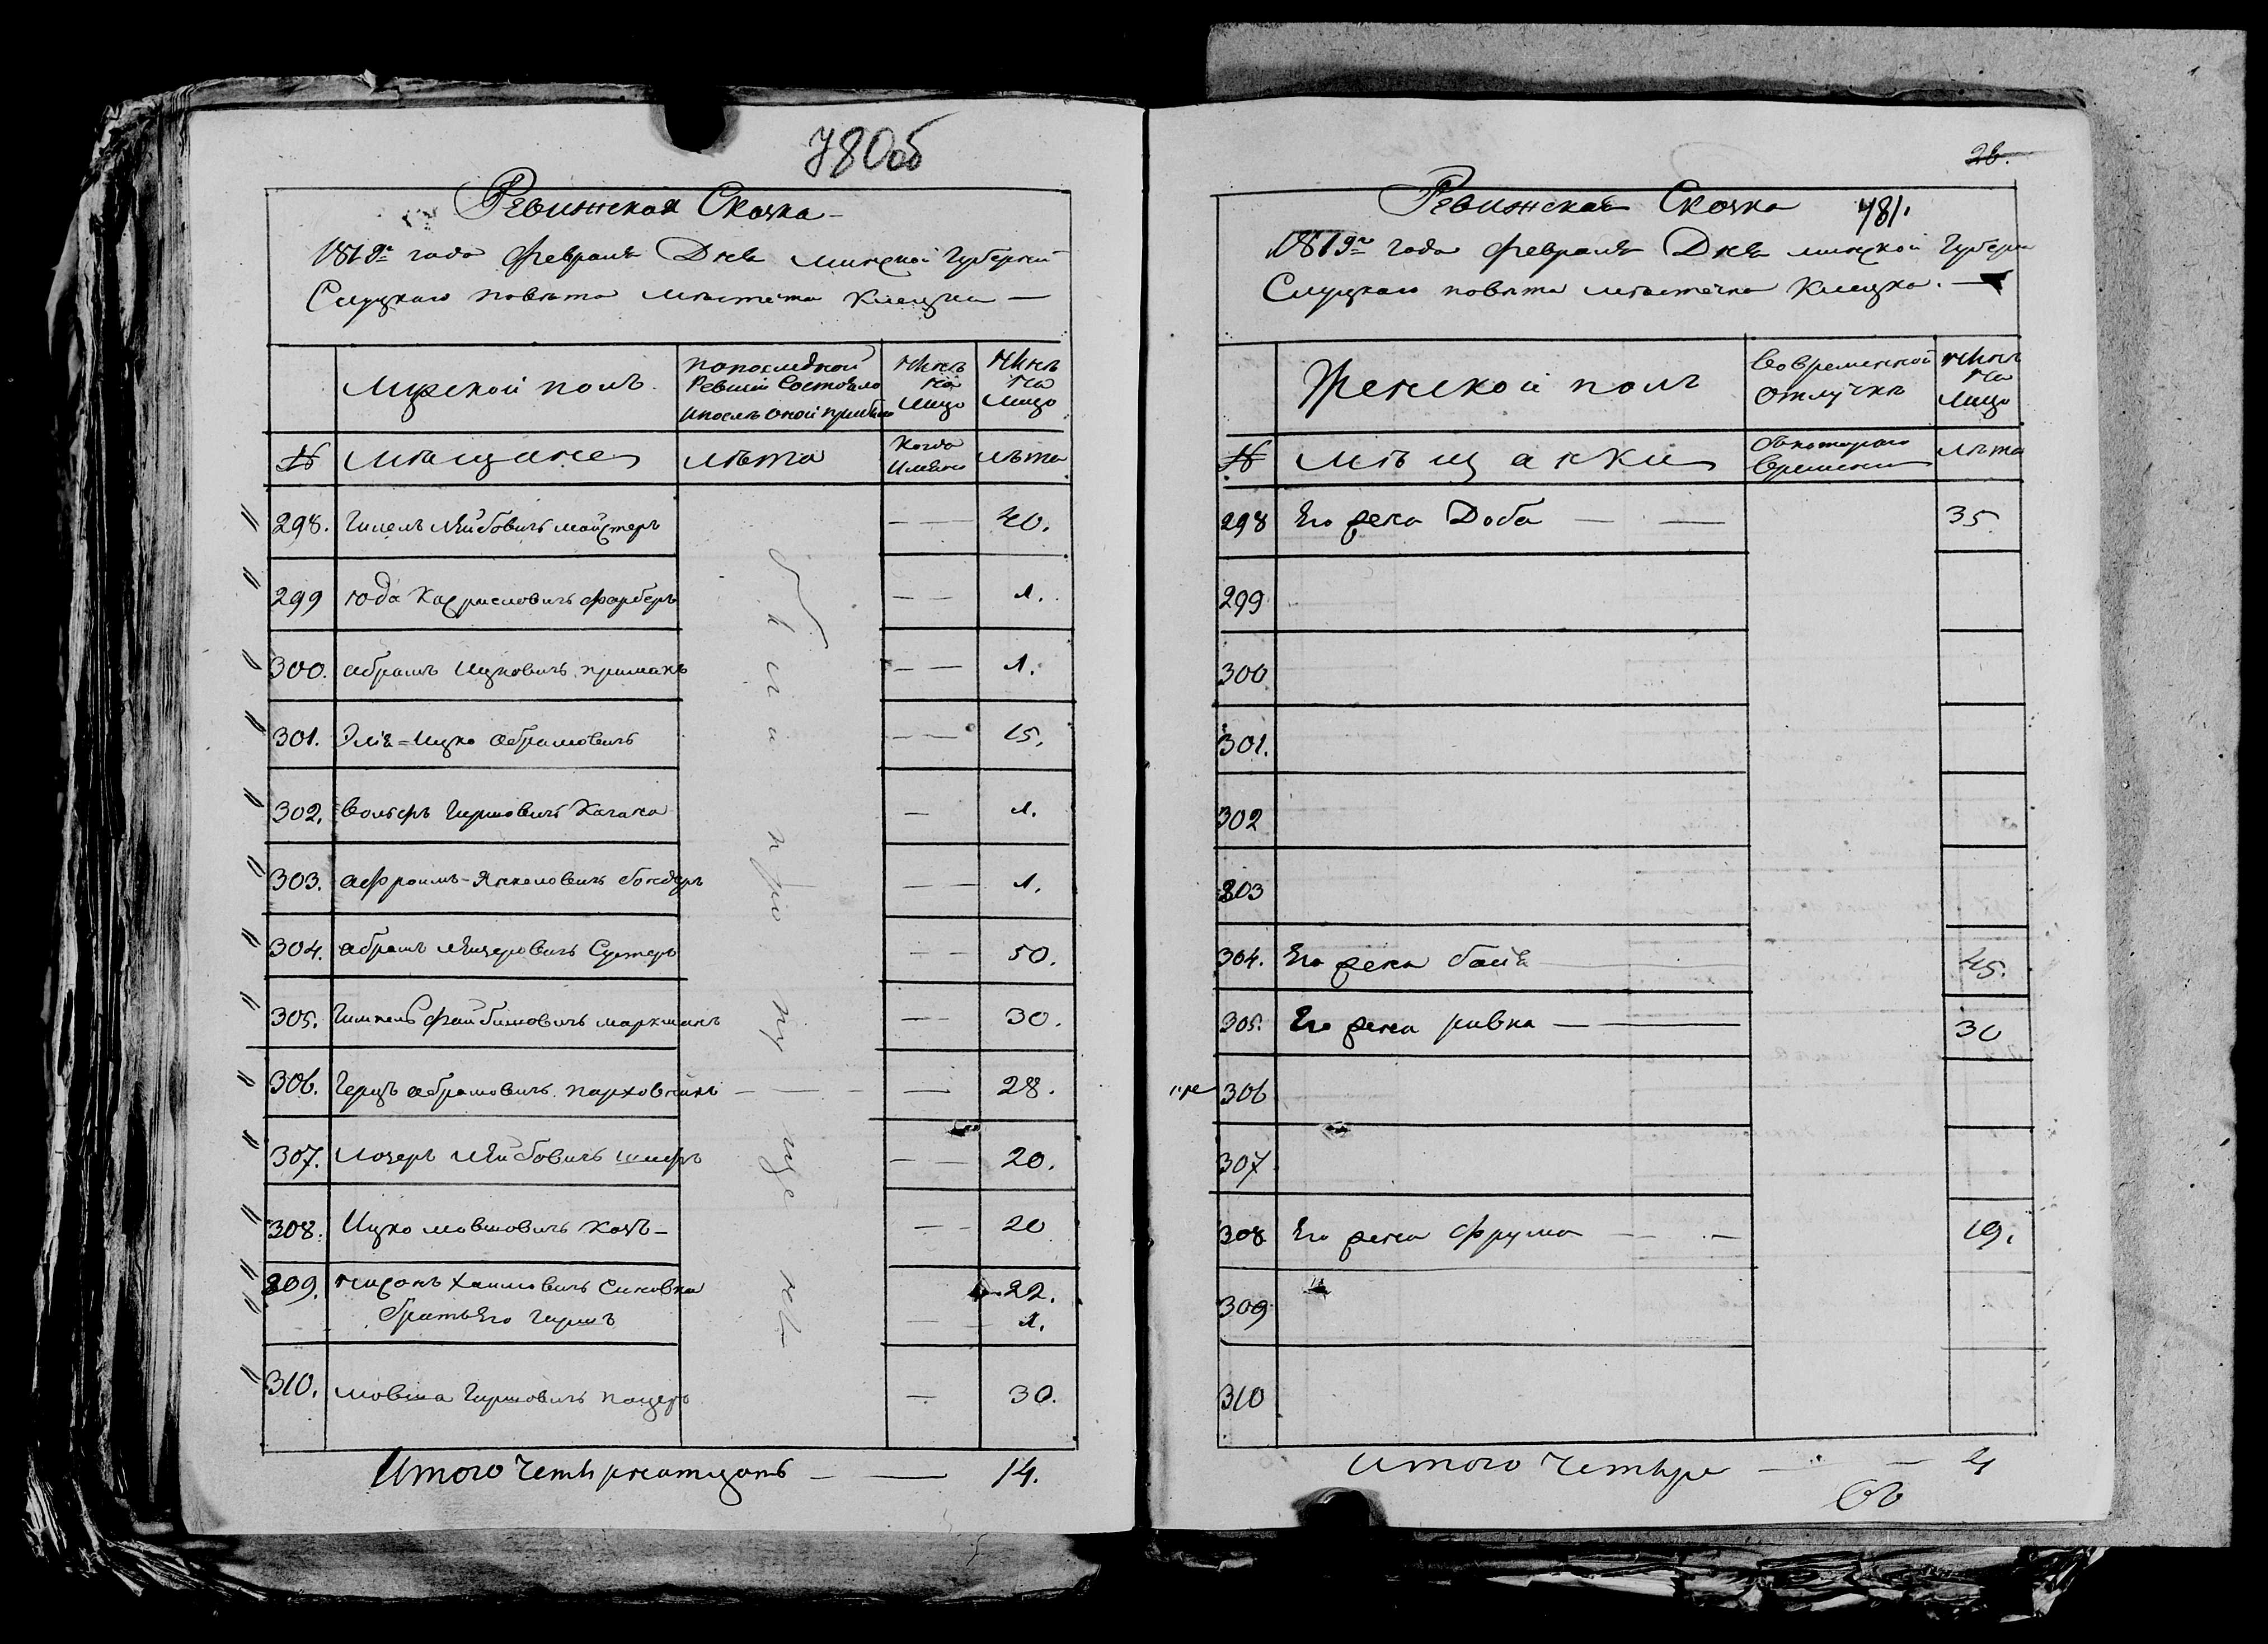 780об
Ревижская Сказка
1819го года февраля Дня минской Губерний
Слуцкаго повѣта мѣстечка Клецка
Мужской полъ
попоследней Ревизіи Состояло ипослѣ оной прибыло
нынѣ на лицо
нынѣ на лицо
№
мѣщане
лѣта
Когда Имянно
лѣта
298. Гилелъ Лейбовичъ майстеръ 40.
299 юда фарберъ 1.
300. абрамъ Ицковичъ примакъ 1.
301. Элiя=Ицко абрамовичъ 15.
302. Вольфъ Гиршовичъ 1.
303. афроимъ-Янкеловичъ бондеръ 1.
304. абрамъ Сухтеръ 50.
305. Гимпель Файбишовичъ маркманъ 30.
306. Герцъ абрамовичъ 28.
307. Лозеръ Лейбовичъ 20.
308. Ицко мовшовичъ Кацъ 20
309. нисонъ Хаимовичъ Синовка 22.
братъ Его Гиршъ 1.
310. мовша Гиршовичъ 30.
Итого Четырнатцать 14.
28.
Ревижская Сказка 781.
1819го года февраля Дня минской Губерн
Слуцкаго повѣта мѣстечка Клецка.
Женской полъ
Вовременной отлучкѣ
нынѣ на лицо
№
мѣщанки
Скотораго Времени
лѣта
298 Его жена Доба 35
299
300
301.
302
303
304. Его жена бася 45.
305. Его жена ривка 30
306
307
308 Его жена фрума 19.
309
310
Итого Четыре 4